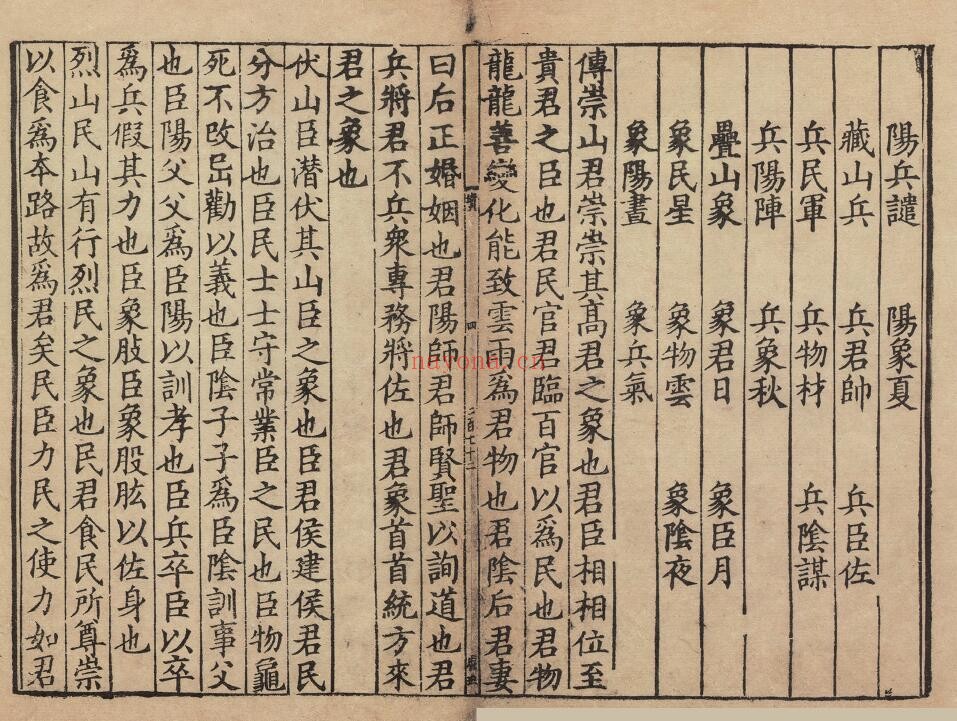 陽兵譴 陽象夏
藏山兵 兵君帥 兵臣佐
兵民軍 兵物材 兵陰謀
兵陽陣 兵象秋
疊山象 象君日 象臣月
象民星 象物雲 象陰夜
象陽晝 象兵氣
傳崇山君崇崇其高君之象也君臣相相位至
貴君之臣也君民官君臨百官以爲民也君物
龍龍善變化能致雲雨爲君物也君陰后君妻
曰后正婚姻也君陽師君師賢聖以詢道也君
兵將君不兵衆專務將佐也君象首首統方來
君之象也
伏山臣潛伏其山臣之象也臣君侯建侯君民
分方治也臣民士士守常業臣之民也臣物龜
死不改岀勸以義也臣陰子子爲臣陰訓事父
也臣陽父父爲臣陽以訓孝也臣兵卒臣以卒
爲兵假其力也臣象肢臣象股肱以佐身也
烈山民山有行烈民之象也民君食民所尊崇
以食爲本路故爲君矣民臣力民之使力如君
四
二百七十二
nayona.cn